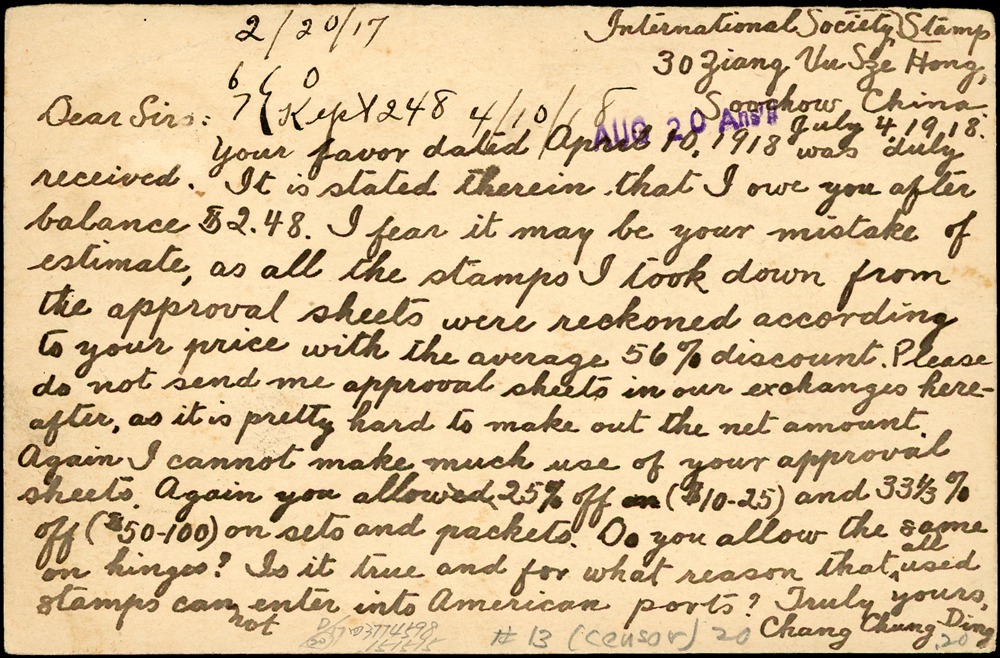 2/20/17
International Society Stamp
30 Ziang Vu Sze Hong,
Soochow, China
July 4, 1918.
6 0
7 Kept 248 4/10/18
AUG 20 Ans'd
Dear Sirs:
Your favor dated April 10, 1918 was duly
received. It is stated therein that I owe you after
balance $2.48. I fear it may be your mistake of
estimate, as all the stamps I took down from
the approval sheets were reckoned according
to your price with the average 56% discount. Please
do not send me approval sheets in our exchanges here-
after, as it is pretty hard to make out the net amount.
Again I cannot make much use of your approval
sheets. Again you allowed 25% off ($10-25) and 33⅓%
off ($50-100) on sets and packets. Do you allow the same
on hinges? Is it true and for what reason that all used
stamps can not enter into American ports? Truly yours,
Chang Chung Ding
# 13 (censor) 20
.20